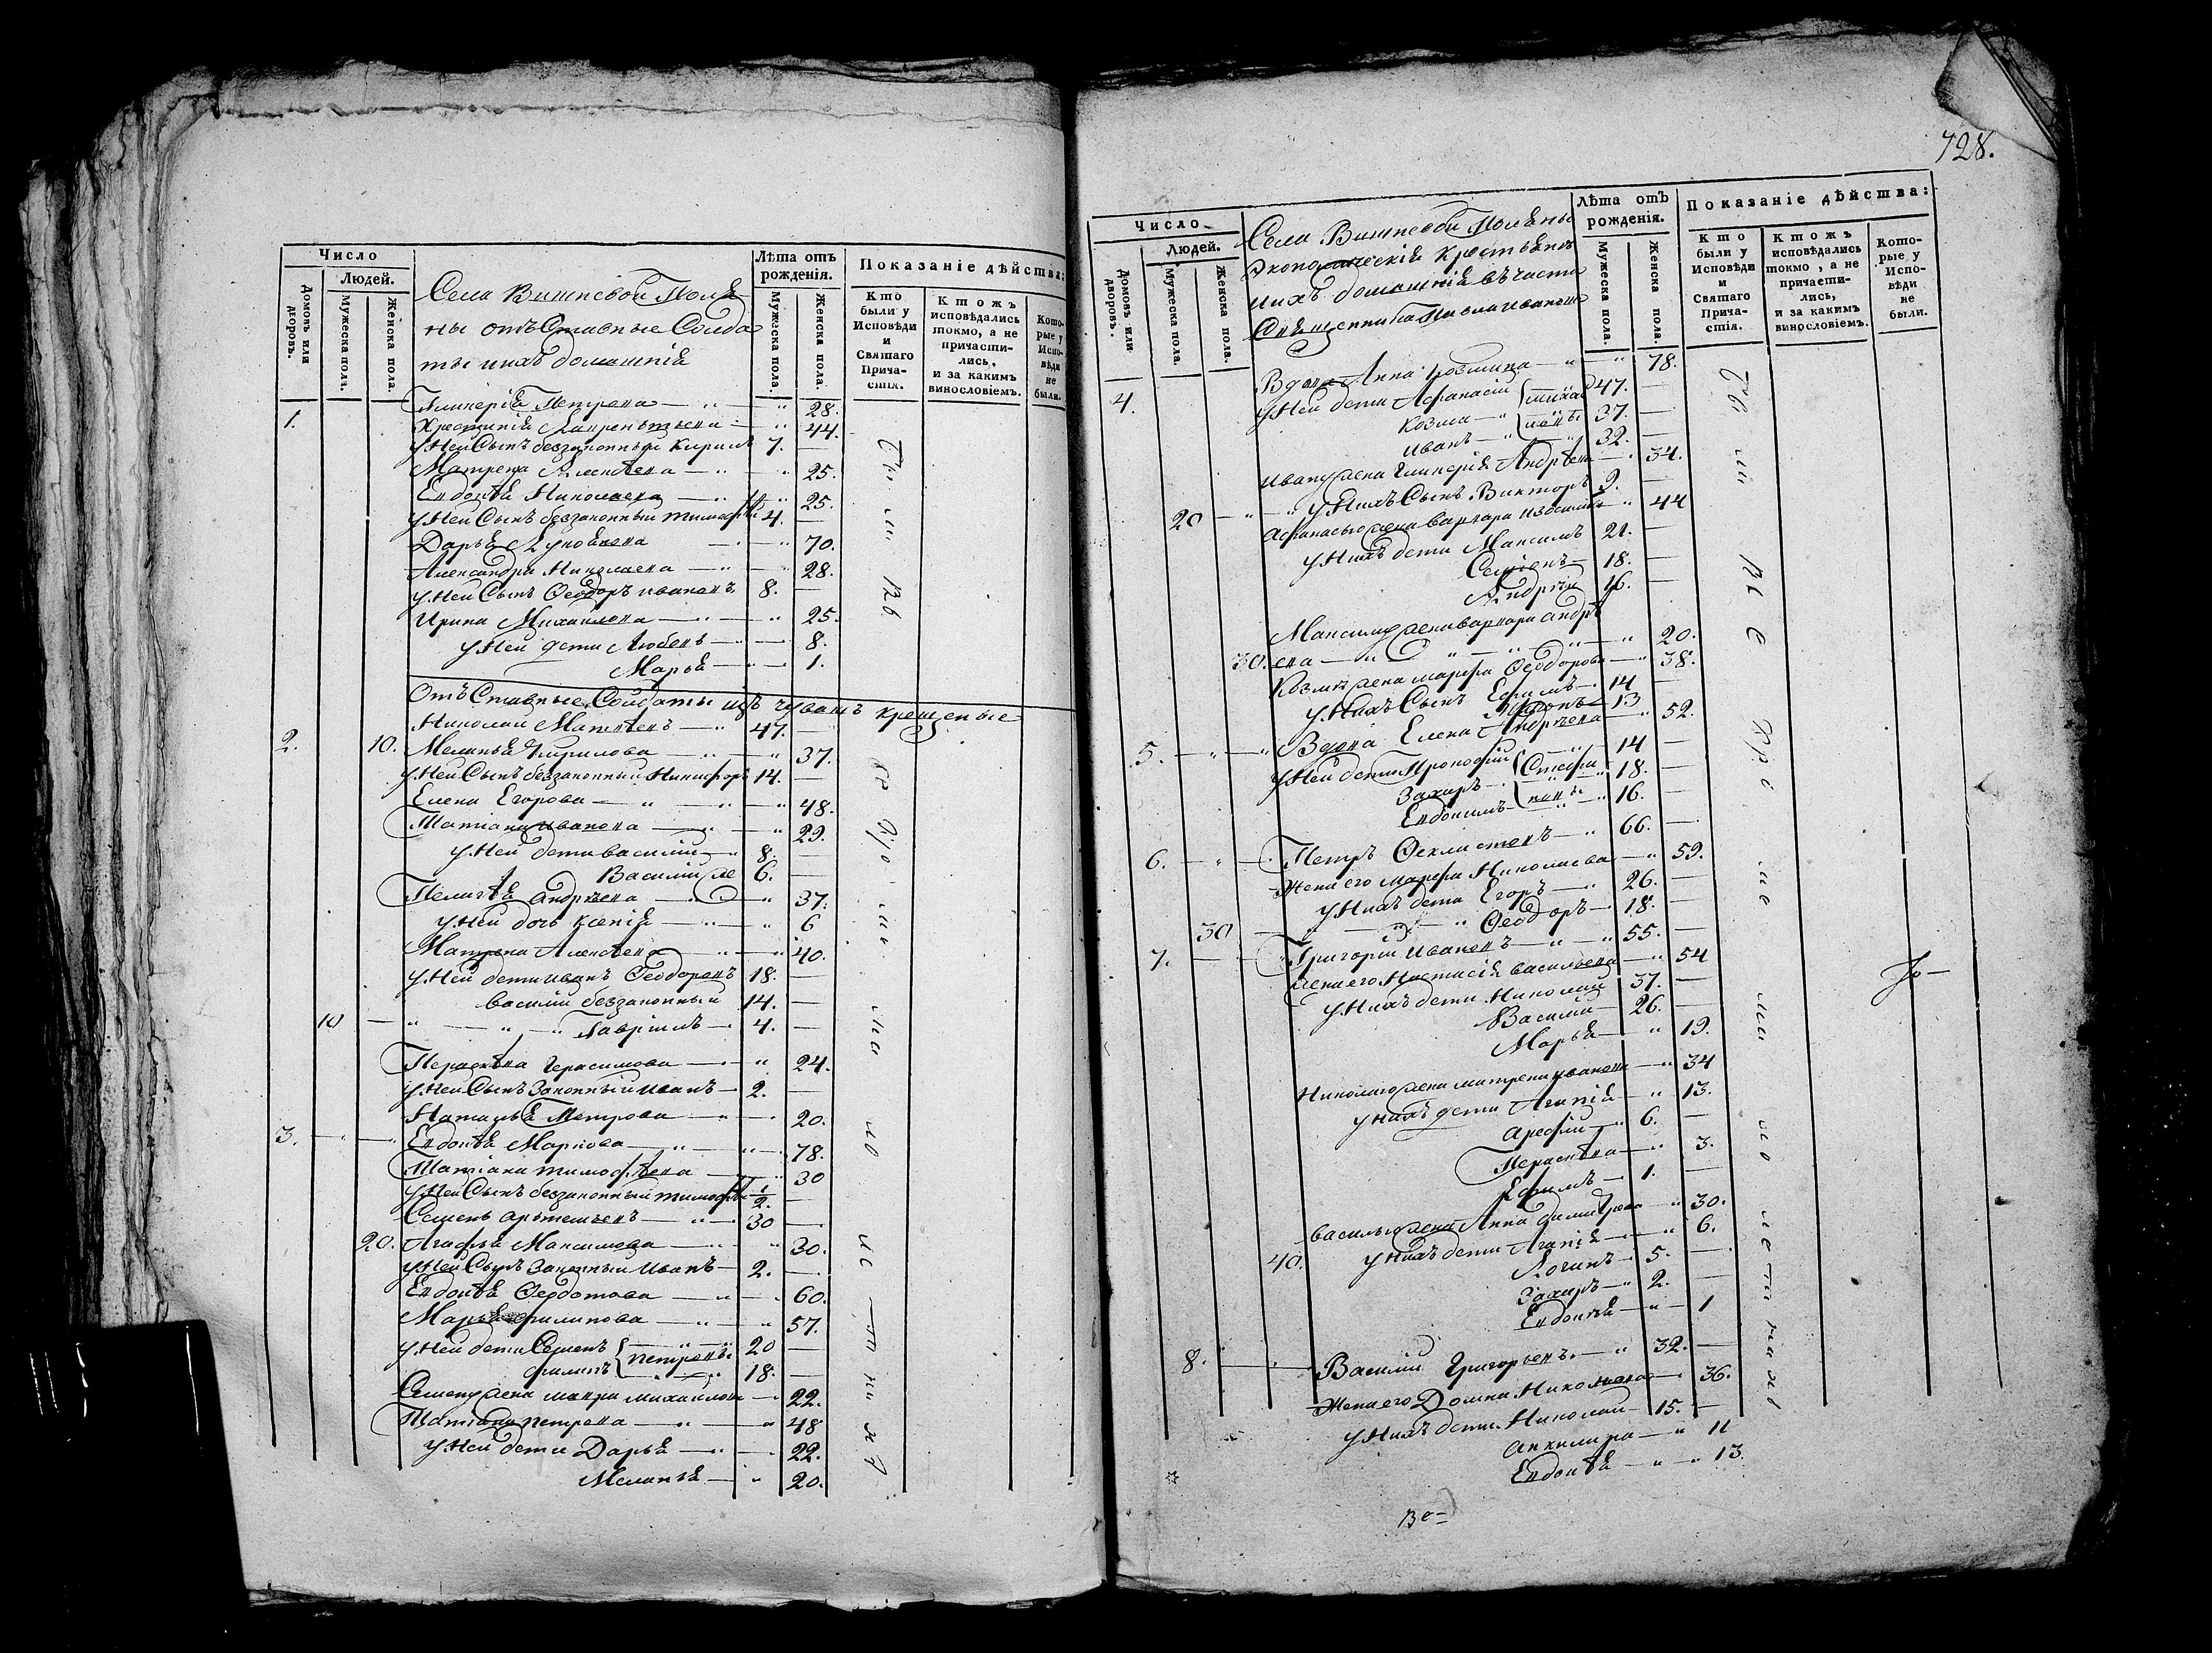 Число
Людей.
Домовъ или дворовъ.
Мужеска пола.
Женска пола.
Села Вишневой Поля
ны отъ Ставные Солда
ты ихъ домашнія
Лѣта отъ рожденія.
Мужеска пола.
Женска пола.
Показаніе дѣйства:
Кто были у Исповѣди и Святаго Прича-стія.
Ктожъ исповѣдались токмо, а не причасти-лись, и за какимъ винословіемъ.
Кото-рые у Испо-вѣди не были.
1. Гликерія Петрова 28.
Хрестинія Лаврентьева 44.
у Ней Сынъ беззаконный Кирилъ 7.
Матрена Алексѣева 25.
Евдокѣя Николаева 25.
у Ней Сынъ беззаконный тимофѣй 4.
Дарья 70.
Александра Николаева 28.
у Ней Сынъ Ѳеодоръ ивановъ 8.
Ирина Михаилова 25.
у Ней дети Любовь 8.
Марья 1.
Отъ Ставные Солдаты изъ чувашъ крещеные
2. Николай Матвѣевъ 47.
10. Меланья Кирилова 37.
у Ней Сынъ беззаконный Никифоръ 14.
Елена Егорова 48.
Татіана иванова 29.
у Ней дети василий 8.
Василий же 6.
Пелагѣя андрѣева 37.
у Ней дочь Ксенія 6
Матрена Алексѣева 40.
у Ней дети иванъ Ѳеодоровъ 18.
василий беззаконный 14.
10 Гавріилъ 4.
Параскѣва Герасимова 24.
у Ней Сынъ Законный иванъ 2.
Наталья Петрова 20.
3. Евдокѣя Маркова 78.
Татіана тимофѣева 30
у Ней Сынъ беззаконный тимофѣй 1/2.
Семенъ артемьевъ 30
20. Агафья Максимова 30.
у Ней Сынъ Законный Иванъ 2.
Евдокѣя Ѳедотова 60.
Марья филипова 57.
у Ней дети Семенъ 20
петровы
филипъ 18.
Семену жена мавра михаилова 22.
Татіана петрова 48
у Ней дети Дарья 22.
Меланья 20.
728.
Число
Людей.
Домовъ или дворовъ.
Мужеска пола.
Женска пола.
Села Вишневой Поляны
Экономическія Крестьяня
ихъ домашнія въ части
Священника Павла иванова
Лѣта отъ рожденія.
Мужеска пола.
Женска пола.
Показаніе дѣйства:
Кто были у Исповѣди и Святаго Прича-стія.
Ктожъ исповѣдались токмо, а не причасти-лись, и за какимъ винословіемъ.
Кото-рые у Испо-вѣди не были.
4. Вдова Анна Козмина 78.
у Ней дети Афанасий 47.
Козма 37.
иванъ 32.
ивану жена Гликерія Андрѣева 34.
20 у Нихъ Сынъ Викторъ 9.
Афанасью жена варвара 44
у Нихъ дети Максимъ 21.
Семіонъ 18.
Андрѣй 16.
Максиму жена варвара андрѣ
30. ева 20.
Козмѣ жена марфа Ѳеодорова 38.
у Нихъ Сынъ Ефимъ 14
13
5. Вдова Елена Андрѣева 52.
у Ней дети Прокофий 14
Захаръ 18.
Евдокимъ 16.
6. Петръ Ѳеклистовъ 66.
Жена его марфа Николаева 59.
у Нихъ дети Егоръ 26.
30 Ѳеодоръ 18.
7. Григорий Ивановъ 55.
жена его Настасія васильева 54
у Нихъ дети Николай 37.
Василий 26.
Марья 19.
Николаю жена матрена иванова 34
у нихъ дети Агапія 13.
арефий 6.
Параскѣва 3.
Ефимъ 1.
василью жена Анна димитрева 30.
40. у Нихъ дети Агапія 6.
Логинъ 5.
Захаръ 2.
Евдокѣя 1
8. Василий Григорьевъ 32.
Жена его Домна Николаева 36.
у Нихъ дети Николай 15.
акилина 11
Евдокѣя 13.
Ва-